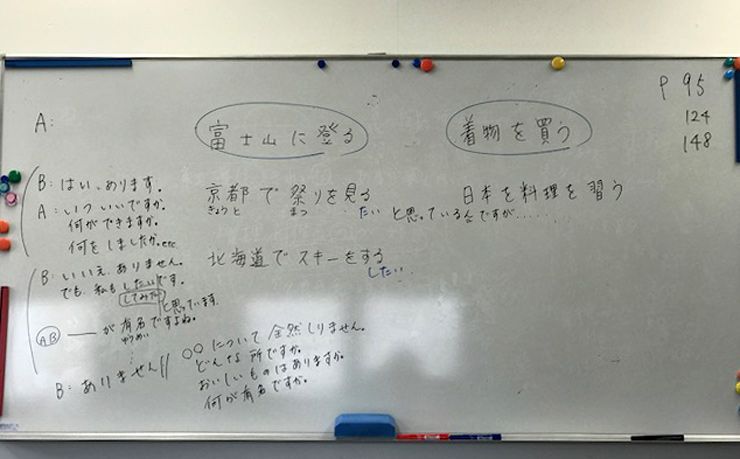 P 95
124
148
A:
富士山に登る
着物を買う
B: はい、あります。
A: いついいですか。
何ができますか。
何をしましたか。etc
京都で祭りを見る
きょうと まつ たい と思っているんですが......
日本を料理を習う
北海道でスキーをする
したい..
B: いいえ、ありません。
でも、私もしたいです。
してみたい と思っています。
AB ── が有名ですよね。
ゆうめい
B: ありません//
○○について全然しりません。
どんな所ですか。
おいしいものはありますか。
何が有名ですか。